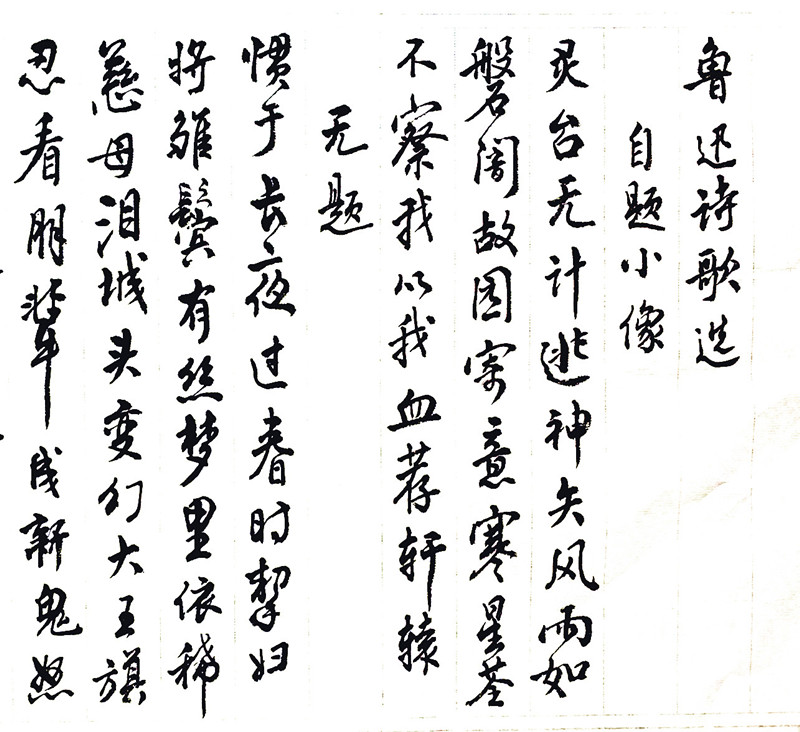 鲁迅诗歌选
自题小像
灵台无计逃神矢风雨如
磐闇故园寄意寒星荃
不察我以我血荐轩辕
无题
惯于长夜过春时挈妇
将雏鬓有丝梦里依稀
慈母泪城头变幻大王旗
忍看朋辈成新鬼怒